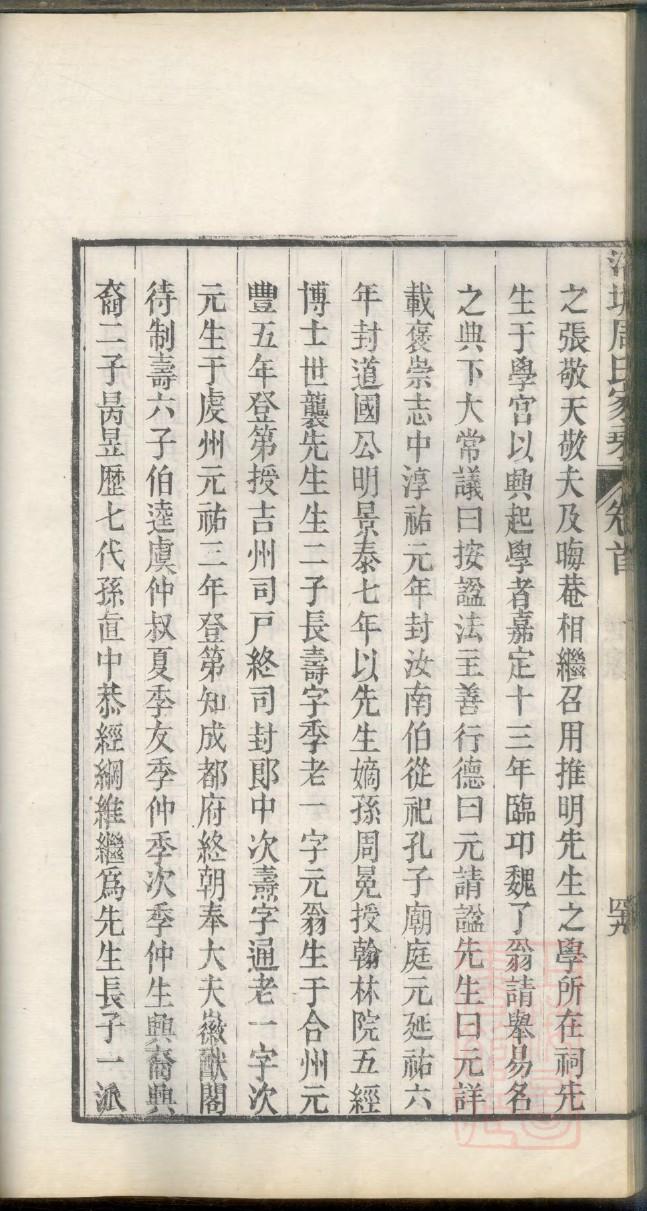 周氏家乘 卷首
之張敬天敬夫及晦菴相繼召用推明先生之學所在祠先
生于學宮以興起學者嘉定十三年臨卭魏了翁請舉易名
之典下大常議曰按諡法主善行德曰元請諡先生曰元詳
載褒崇志中淳祐元年封汝南伯從祀孔子廟庭元延祐六
年封道國公明景泰七年以先生嫡孫周冕授翰林院五經
博士世襲先生生二子長壽字季老一字元翁生于合州元
豐五年登第授吉州司戸終司封郎中次燾字通老一字次
元生于虔州元祐三年登第知成都府終朝奉大夫徽猷閣
待制壽六子伯逵虞仲叔夏季友季仲季次季仲生興裔興
裔二子昺昱歷七代孫直中恭經綱維繼爲先生長子一派